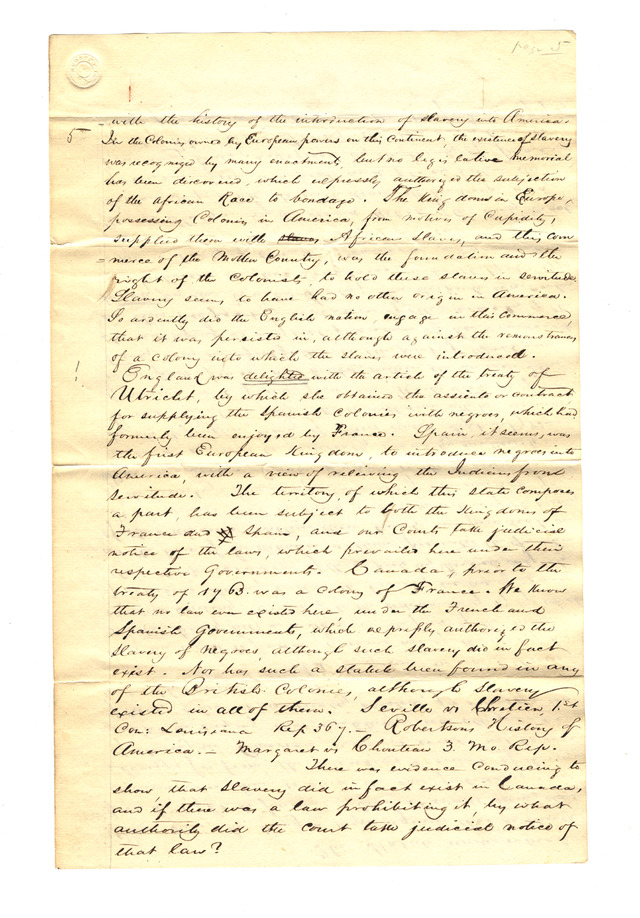 page 5
with the history of the introduction of slavery into America.
5
In the Colonies owned by European powers on this Continent, the existence of slavery
was recognized by many enactments, but no legislative memorial
has been discovered, which expressly authorized the subjection
of the african Race to bondage. The Kingdoms in Europe,
possessing Colonies in America, from motives of Cupidity,
supplied them with slaves African slaves, and this com
=merce of the Mother Country, was the foundation and the
right of the Colonists, to hold these slaves in servitude.
Slavery seems to have had no other origin in America.
So ardently did the English nation engage in this commerce,
that it was persisted in, although against the remonstrances
of a colony into which the slaves were introduced.
! England was delighted with the article of the treaty of
Utricht, by which she obtained the assiento or contract
for supplying the Spanish Colonies with negroes, which had
formerly been enjoyed by France. Spain, it seems, was
the first European Kingdom, to introduce negroes into
America, with a view of relieving the Indians from
servitude. The territory, of which this state composes
a part, has been subject to both the Kingdoms of
France and Spain, and our Courts take judicial
notice of the laws, which prevailed here under their
respective Governments. Canada, prior to the
treaty of 1763. was a colony of France. We know
that no law ever existed here, under the French and
Spanish Governments, which expressly authorized the
slavery of negroes, although such slavery did in fact
exist. Nor has such a statute been found in any
of the British Colonies, although slavery
existed in all of them. Seville vs Chretien 1st
Con: Louisiana Rep 367. — Robertson's History of
America. — Margaret vs Chouteau 3. Mo Rep.
There was evidence conducing to
show, that slavery did in fact exist in Canada,
and if there was a law prohibiting it, by what
authority did the court take judicial notice of
that law?